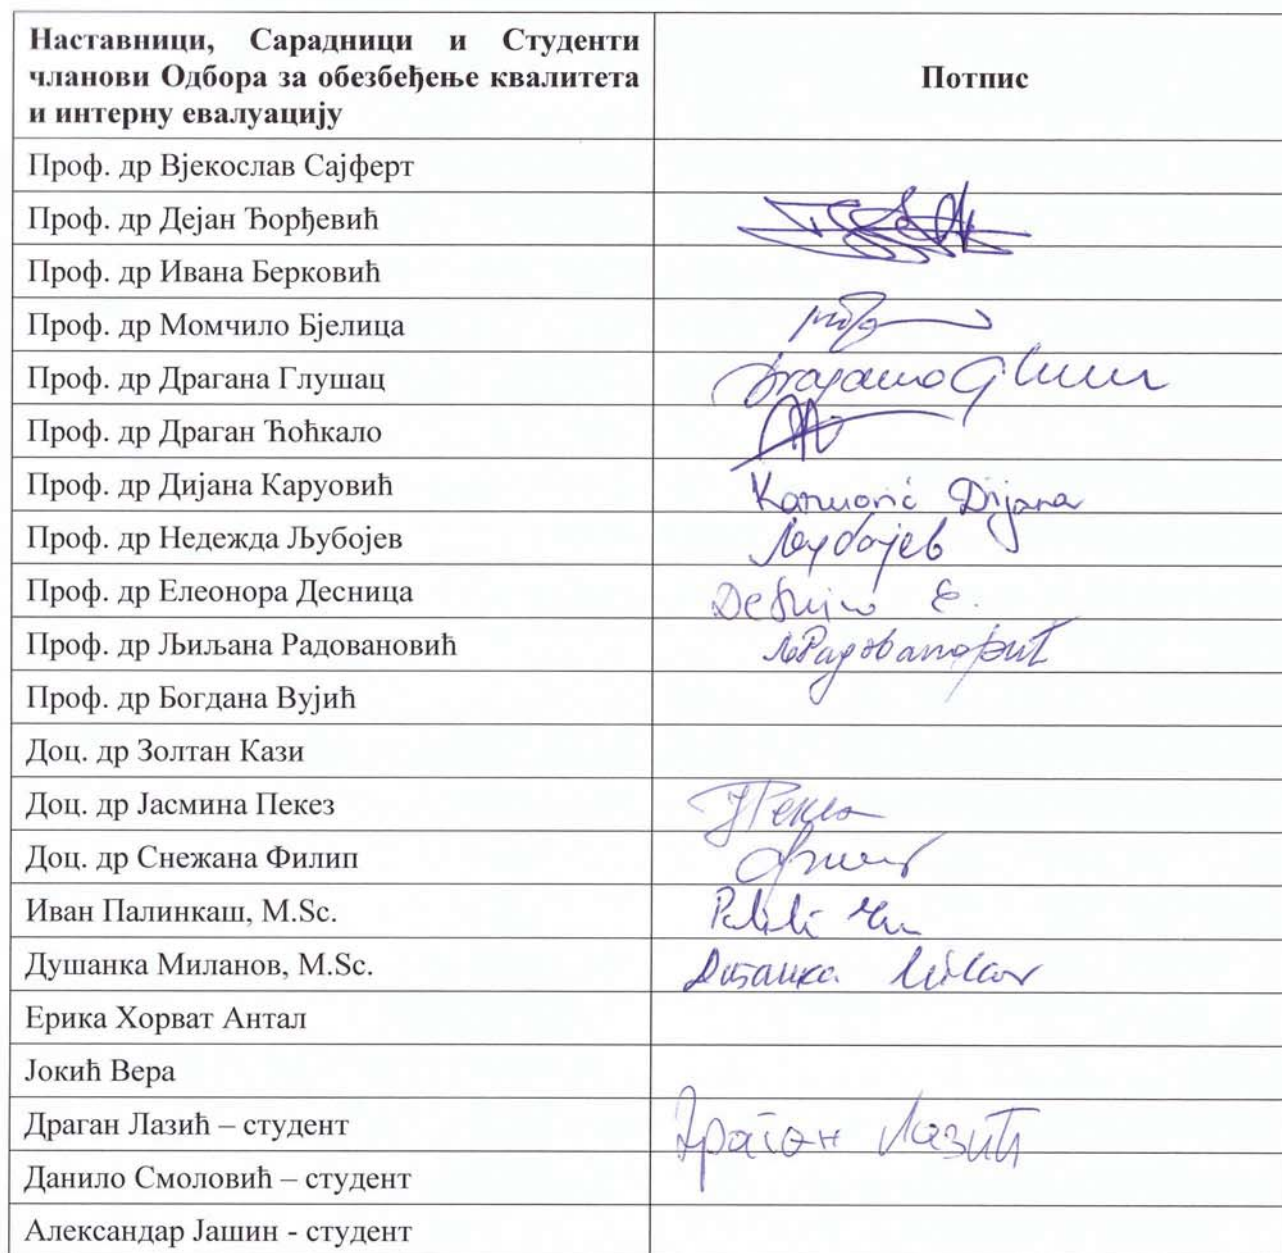 Наставници, Сарадници и Студенти
чланови Одбора за обезбеђење квалитета
и интерну евалуацију
Потпис
Проф. др Вјекослав Сајферт
Проф. др Дејан Ђорђевић
Проф. др Ивана Берковић
Проф. др Момчило Бјелица
Проф. др Драгана Глушац
Проф. др Драган Ћоћкало
Проф. др Дијана Каруовић
Karuović Dijana
Проф. др Недежда Љубојев
Љубојев
Проф. др Елеонора Десница
Проф. др Љиљана Радовановић
Проф. др Богдана Вујић
Доц. др Золтан Кази
Доц. др Јасмина Пекез
Доц. др Снежана Филип
Иван Палинкаш, M.Sc.
Душанка Миланов, M.Sc.
Ерика Хорват Антал
Јокић Вера
Драган Лазић – студент
Драган Лазић
Данило Смоловић – студент
Александар Јашин - студент